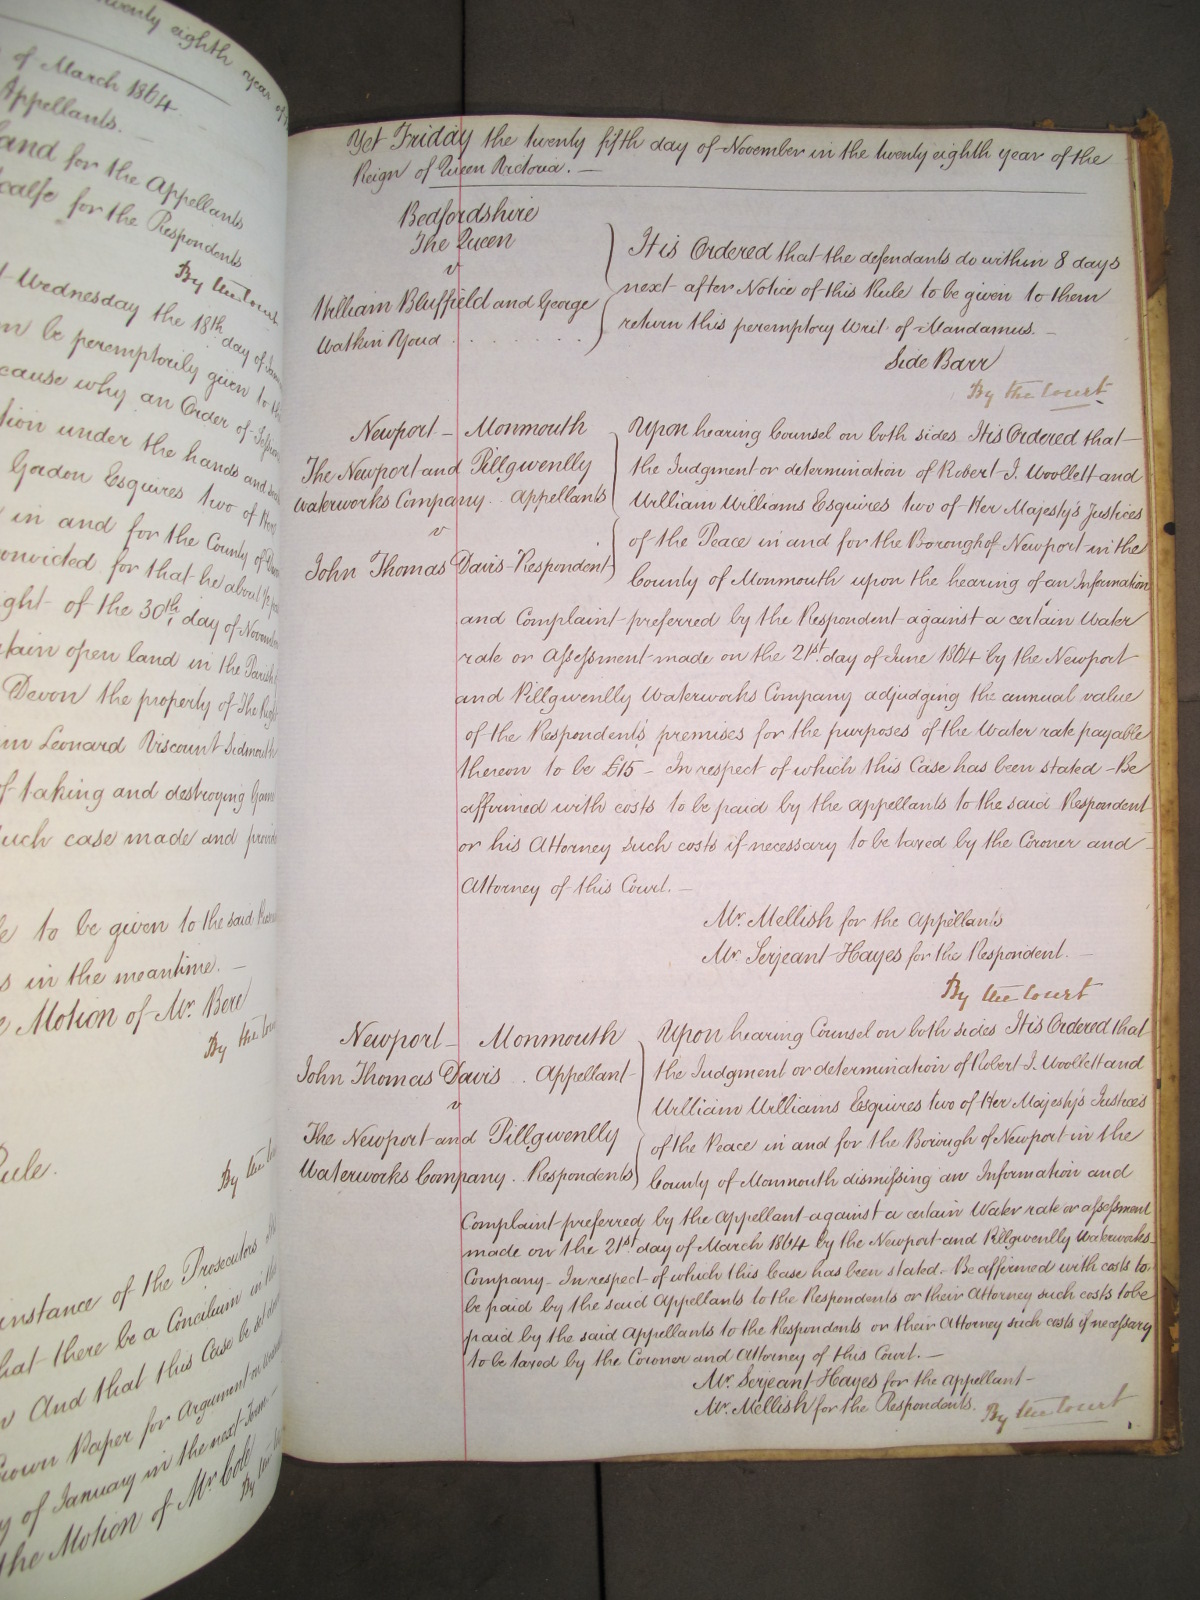 twenty eighth year of
of March 1864
Appellants.
land for the Appellants
calfe for the Respondents
By the Court
Wednesday the 18th day of
be peremptorily given to the
cause why an Order of Sessions
tion under the hands and
Gordon Esquires two of Her
in and for the County of Devon
convicted for that he about
ight of the 30th day of November
tain open land in the Parish
Devon the property of The Right
am Leonard Viscount Sidmouth
of taking and destroying Game
such case made and provided
to be given to the said
s in the meantime. —
Motion of Mr. Bere
By the Court
Rule.
By the Court
instance of the Prosecutors
that there be a Concilium in the
And that this Case be set down
Crown Paper for Argument on
y of January in the next Term —
the Motion of Mr. Cole
By the
Yet Friday the twenty fifth day of November in the twenty eighth year of the
Reign of Queen Victoria. —
Bedfordshire
The Queen
v
William Bluffield and George
Watkin Youd . . . . . . . .
It is Ordered that the defendants do within 8 days
next after Notice of this Rule to be given to them
return this peremptory Writ of Mandamus. —
Side Barr
By the Court
Newport — Monmouth
The Newport and Pillgwenlly
Waterworks Company. Appellants
v
John Thomas Davis Respondent
Upon hearing Counsel on both sides It is Ordered that
the Judgment or determination of Robert J. Woollett and
William Williams Esquires two of Her Majesty's Justices
of the Peace in and for the Borough of Newport in the
County of Monmouth upon the hearing of an Information
and Complaint preferred by the Respondent against a certain Water
rate or Assessment made on the 21st. day of June 1864 by the Newport
and Pillgwenlly Waterworks Company adjudging the annual value
of the Respondent's premises for the purposes of the Water rate payable
thereon to be £15 — In respect of which this Case has been stated — Be
affirmed with costs to be paid by the appellants to the said Respondent
or his Attorney such costs if necessary to be taxed by the Coroner and
Attorney of this Court. —
Mr. Mellish for the Appellants
Mr. Serjeant Hayes for the Respondent. —
By the Court
Newport — Monmouth
John Thomas Davis . Appellant
v
The Newport and Pillgwenlly
Waterworks Company. Respondents
Upon hearing Counsel on both sides It is Ordered that
the Judgment or determination of Robert J. Woollett and
William Williams Esquires two of Her Majesty's Justices
of the Peace in and for the Borough of Newport in the
County of Monmouth dismissing an Information and
Complaint preferred by the Appellant against a certain Water rate or assessment
made on the 21st day of March 1864 by the Newport and Pillgwenlly Waterworks
Company — In respect of which this Case has been stated. Be affirmed with costs to
be paid by the said Appellants to the Respondents or their Attorney such costs to be
paid by the said Appellants to the Respondents or their Attorney such costs if necessary
to be taxed by the Coroner and Attorney of this Court. —
Mr. Serjeant Hayes for the appellant —
Mr. Mellish for the Respondents.
By the Court